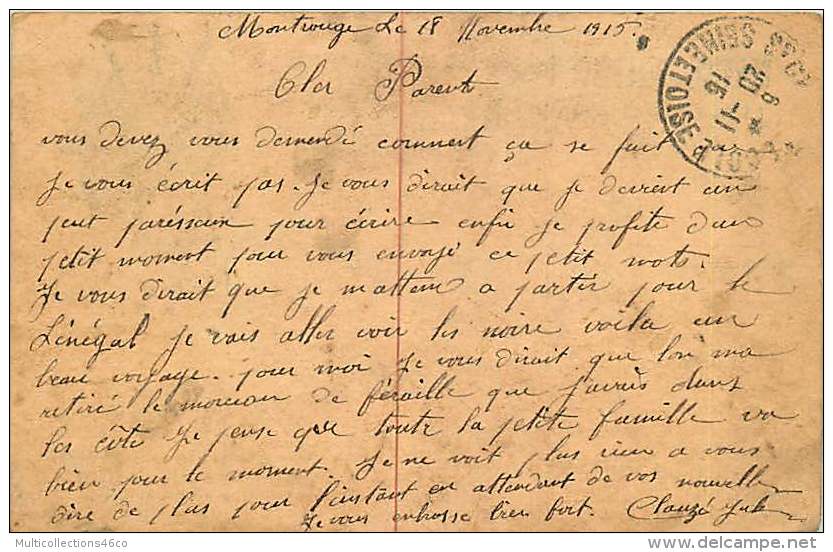 Montrouge Le 18 Novembre 1915.
Cher Parent
vous devez vous demendé comment ça se fait que
Je vous écrit pas. Je vous dirait que je devient un
peut paréssoux pour écrire enfin je profite d'un
petit moment pour vous envoyé ce petit mots.
Je vous dirait que je m'attem a partir pour le
Sénégal je vais aller voir les noire voila un
beau voyage. pour moi Je vous dirait que lon ma
retiré le morceau de féraille que j'avais dans
les côte Je pense que toute la petite famille va
bien pour le moment. Je ne voit plus rien a vous
dire de plus pour l'instant en attendant de vos nouvelle
Je vous enbrosse bien fort. Clauzé
SEINE ET OISE
6
20 - 11
15
Multicollections46co
delcampe.net